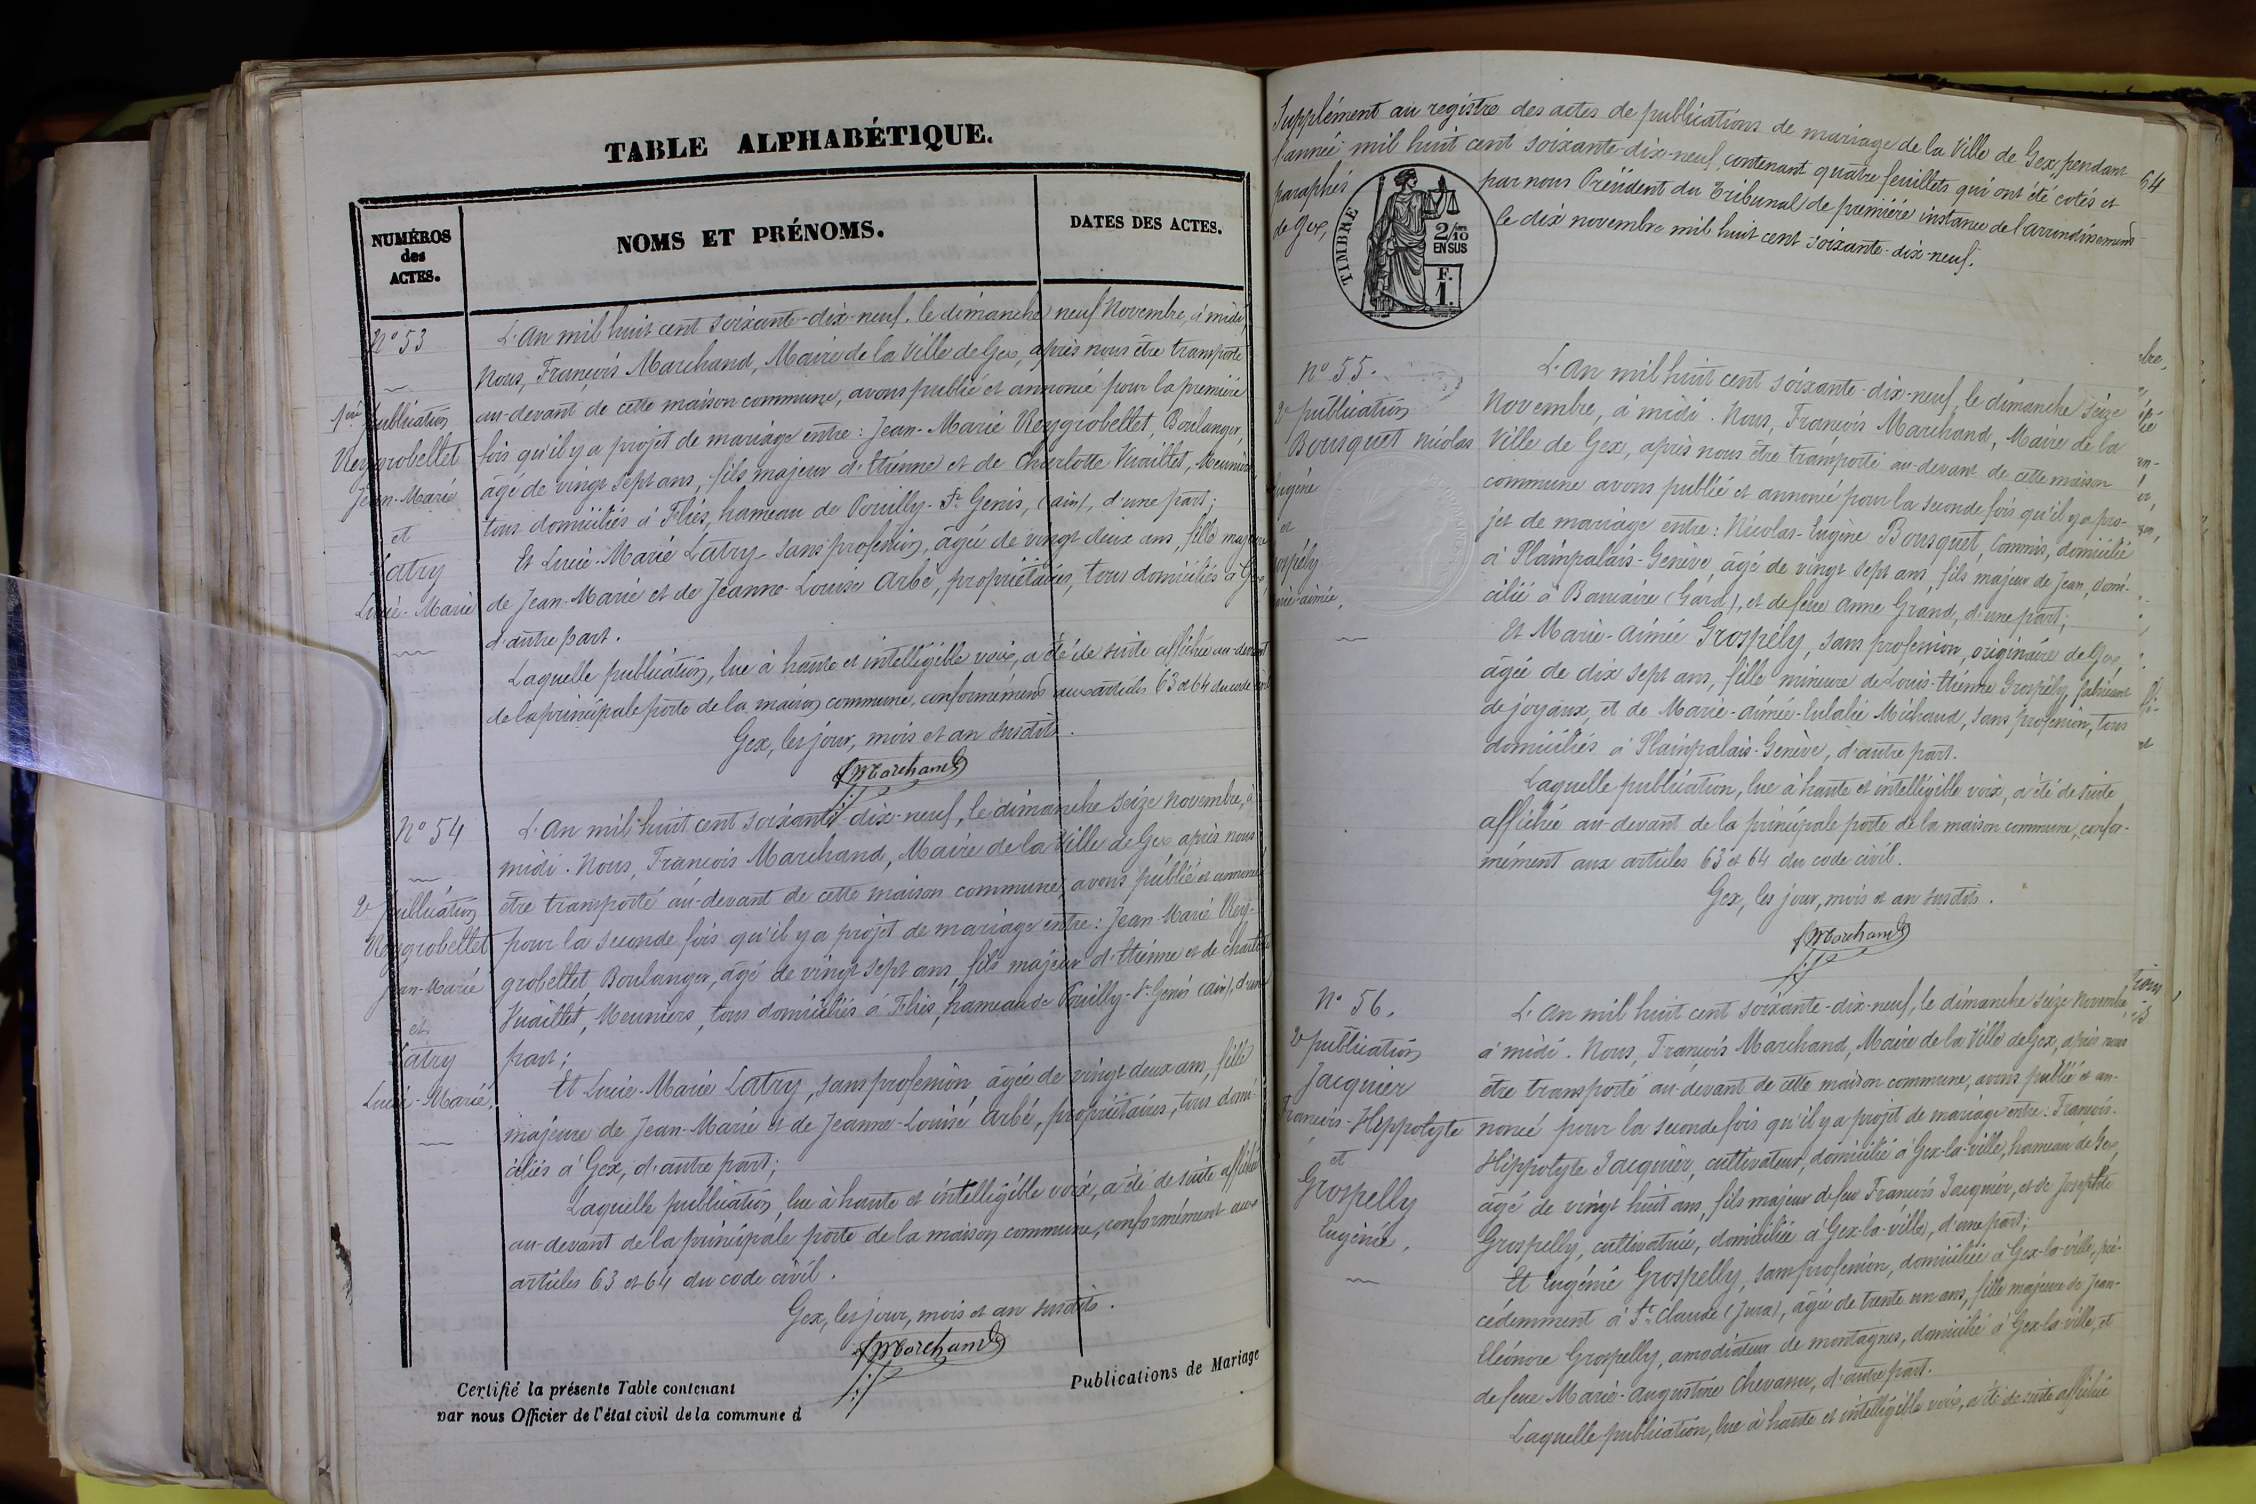 TABLE ALPHABÉTIQUE.
NUMÉROS
des
ACTES.
NOMS ET PRÉNOMS.
DATES DES ACTES.
N° 53
1ère publication
Reygrobellet
Jean-Marie
et
Latry
Lucie-Marie
L'An mil huit cent soixante-dix-neuf, le dimanche neuf Novembre, à midi,
Nous, François Marchand, Maire de la Ville de Gex, après nous être transporté
au-devant de cette maison commune, avons publié et annoncé pour la première
fois qu'il y a projet de mariage entre: Jean-Marie Reygrobellet, Boulanger,
âgé de vingt sept ans, fils majeur d'Etienne et de Charlotte Vuaillet, Meuniers
tous domiciliés à Flies, hameau de Pouilly-St Genis, (ain), d'une part;
Et Lucie-Marie Latry, sans profession, âgée de vingt deux ans, fille majeure
de Jean-Marie et de Jeanne-Louise Arbé, propriétaires, tous domiciliés à Gex,
d'autre part.
Laquelle publication, lue à haute et intelligible voix, a été de suite affichée au-devant
de la principale porte de la maison commune, conformément aux articles 63 et 64 du code civil
Gex, les jour, mois et an susdits.
fMarchand
N° 54
2e publication
Reygrobellet
Jean-Marie
et
Latry
Lucie-Marie,
L'An mil huit cent soixante-dix-neuf, le dimanche seize novembre, à
midi. Nous, François Marchand, Maire de la Ville de Gex après nous
être transporté au-devant de cette maison commune, avons publié et annoncé
pour la seconde fois qu'il y a projet de mariage entre: Jean-Marie Rey-
grobellet, Boulanger, âgé de vingt sept ans, fils majeur d'Etienne et de Charlotte
Vuaillet, Meuniers, tous domiciliés à Flies, hameau de Pouilly-St Genis (ain), d'une
part;
Et Lucie-Marie Latry, sans profession âgée de vingt deux ans, fille
majeure de Jean-Marie et de Jeanne-Louise Arbé, propriétaires, tous domi-
ciliés à Gex, d'autre part;
Laquelle publication, lue à haute et intelligible voix, a été de suite affichée
au-devant de la principale porte de la maison commune, conformément aux
articles 63 et 64 du code civil.
Gex, les jour, mois et an susdits.
fMarchand
Certifié la présente Table contenant
par nous Officier de l'état civil de la commune d
Publications de Mariage
Supplément au registre des actes de publications de mariage de la Ville de Gex, pendant
l'année mil huit cent soixante-dix-neuf, contenant quatre feuillets qui ont été cotés et
paraphés par nous Président du Tribunal de première instance de l'arrondissement
de Gex, le dix novembre mil huit cent soixante-dix-neuf.
64
TIMBRE
2/10
EN SUS
F.
1.
N° 55.
2e publication
Bousquet Nicolas
Eugène
et
Grospély
Marie-aimée,
L'An mil huit cent soixante-dix-neuf, le dimanche seize
Novembre, à midi. Nous, François Marchand, Maire de la
Ville de Gex, après nous être transporté au-devant de cette maison
commune avons publié et annoncé pour la seconde fois qu'il y a pro-
jet de mariage entre: Nicolas-Eugène Bousquet, Commis, domicilié
à Plainpalais-Genève, âgé de vingt sept ans, fils majeur de Jean, domi-
cilié à Baucaire (Gard), et de feue Anne Grand, d'une part;
Et Marie-Aimée Grospély, sans profession, originaire de Gex,
âgée de dix sept ans, fille mineure de Louis-Etienne Grospély, fabricant
de joyaux, et de Marie-Aimée-Eulalie Michaud, sans profession, tous
domiciliés à Plainpalais-Genève, d'autre part.
Laquelle publication, lue à haute et intelligible voix, a été de suite
affichée au-devant de la principale porte de la maison commune, confor-
mément aux articles 63 et 64 du code civil.
Gex, les jour, mois et an susdits.
fMarchand
N° 56.
2e publication
Jacquier
François-Hippolyte
et
Grospelly
Eugénie,
L'An mil huit cent soixante-dix-neuf, le dimanche seize Novembre,
à midi. Nous, François Marchand, Maire de la Ville de Gex, après nous
être transporté au-devant de cette maison commune, avons publié et an-
noncé pour la seconde fois qu'il y a projet de mariage entre: François-
Hippolyte Jacquier, cultivateur, domicilié à Gex-la-ville, hameau de Gex,
âgé de vingt huit ans, fils majeur de feu François Jacquier, et de Josephte
Grospelly, cultivatrice, domiciliée à Gex-la-ville, d'une part;
Et Eugénie Grospelly, sans profession, domiciliée à Gex-la-ville, pré-
cédemment à St Claude (Jura), âgée de trente un ans, fille majeure de Jean-
Eléonore Grospelly, amodiateur de montagnes, domicilié à Gex-la-ville, et
de feue Marie-Augustine Chevanu, d'autre part.
Laquelle publication, lue à haute et intelligible voix, a été de suite affichée